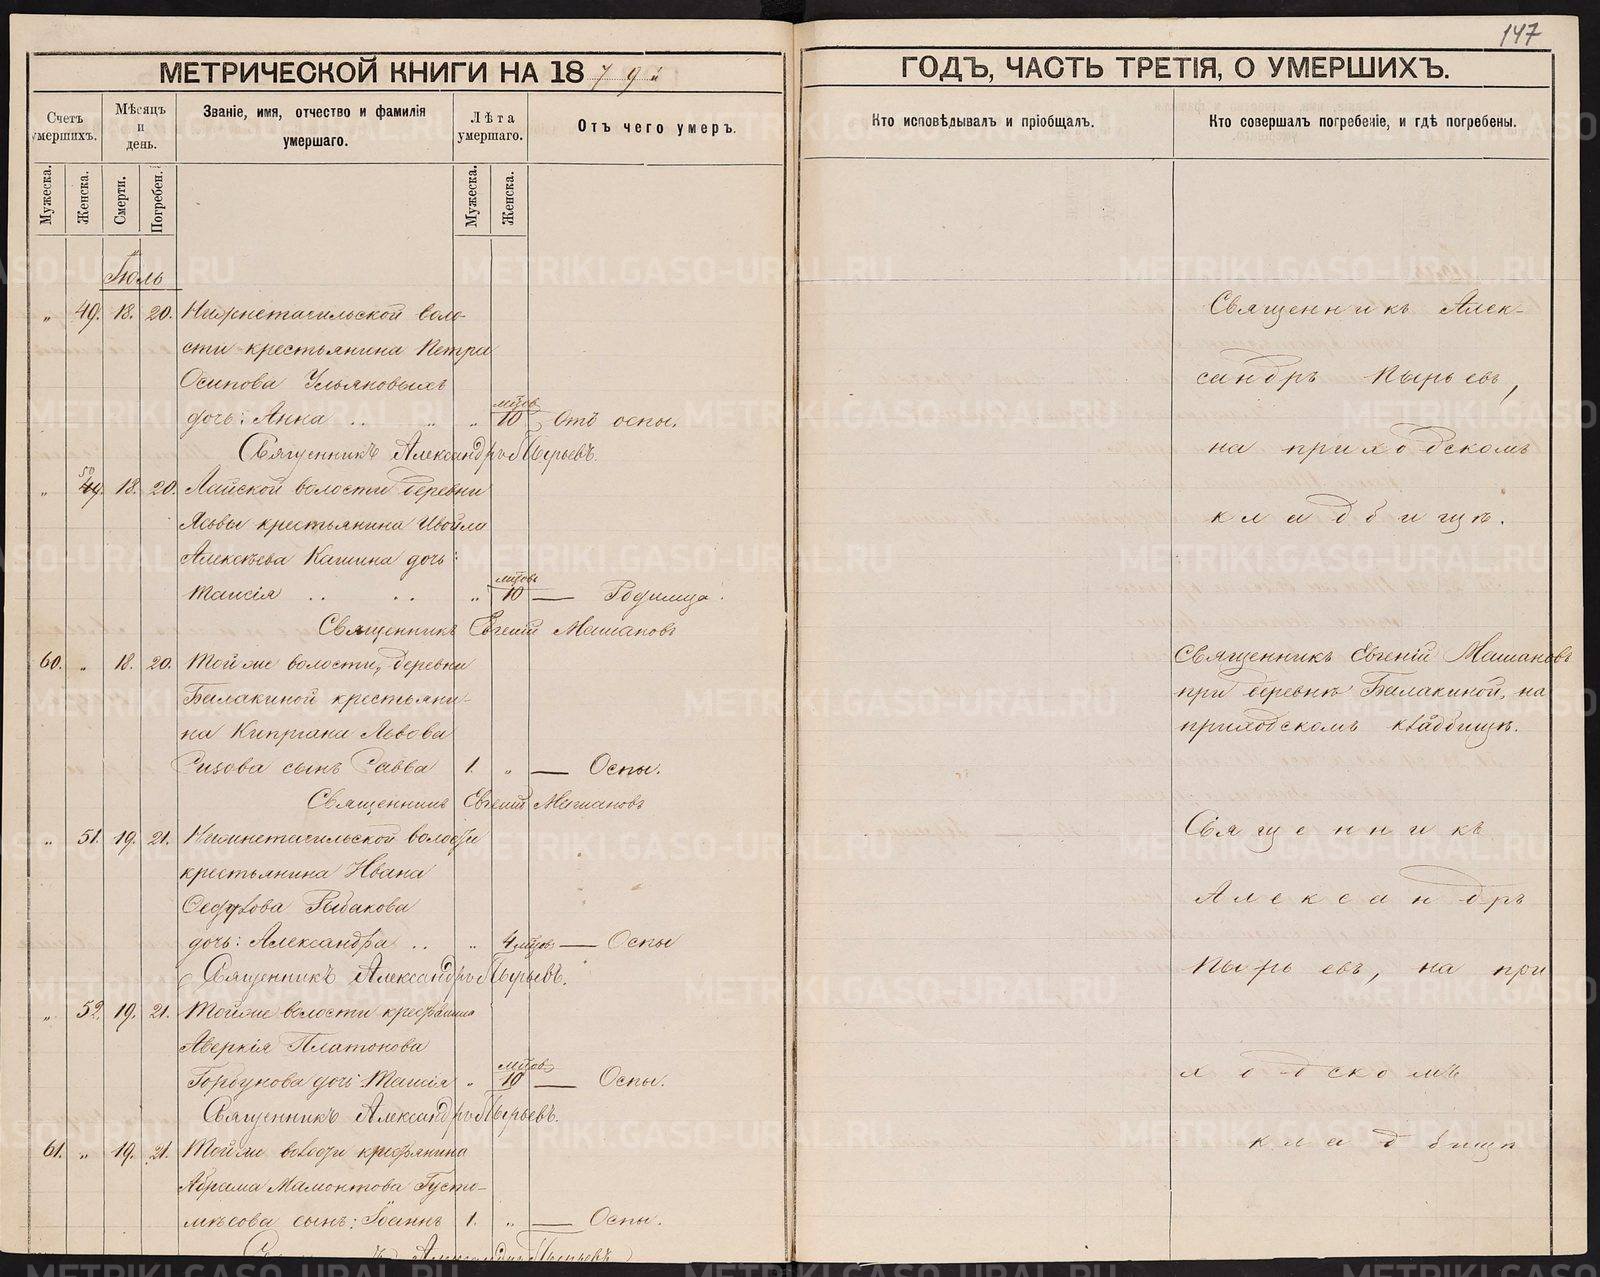 147
МЕТРИЧЕСКОЙ КНИГИ НА 1879й
ГОДЪ, ЧАСТЬ ТРЕТІЯ, О УМЕРШИХЪ.
Счетъ умершихъ.
Мѣсяцъ и день.
Званіе, имя, отчество и фамилія умершаго.
Лѣта умершаго.
Отъ чего умеръ.
Кто исповѣдывалъ и пріобщалъ.
Кто совершалъ погребеніе, и гдѣ погребены.
Мужеска.
Женска.
Смерти.
Погребен.
Мужеска.
Женска.
Іюль
„ 49. 18. 20. Нижнетагильской воло-
сти крестьянина Петра
Осипова Ульяновыхъ
дочь: Анна .. „ „ мцовъ 10 Отъ оспы.
Священникъ Александръ Пырьевъ.
„ 50 49. 18. 20. Лайской волости деревни
крестьянина
Алексѣева Кашина дочь:
Таисія .. .. „ мцовъ 10 — Родимца.
Священникъ Евгеній Машановъ
60. „ 18. 20. Той же волости, деревни
Балакиной крестьяни-
на Кипріана Львова
Ризова сынъ Савва 1. „ — Оспы.
Священникъ Евгеній Машановъ
„ 51. 19. 21. Нижнетагильской волости
крестьянина Ивана
Рыбакова
дочь: Александра .. „ 4 мцовъ — Оспы
Священникъ Александръ Пырьевъ.
„ 52. 19. 21. Той же волости крестьянина
Аверкія Платонова
Горбунова дочь Таисія „ мцовъ 10 — Оспы.
Священникъ Александръ Пырьевъ.
61. „ 19. 21. Той же волости крестьянина
Абрама Мамонтова Густо-
мѣсова сынъ: Іоаннъ 1. „ — Оспы.
Александръ Пырьевъ
Священникъ Алек-
сандръ Пырьевъ,
на приходскомъ
кладбищѣ.
Священникъ Евгеній Машановъ
при деревнѣ Балакиной, на
приходскомъ кладбищѣ.
Священникъ
Александръ
Пырьевъ, на при
ходскомъ
кладбищѣ
METRIKI.GASO-URAL.RU